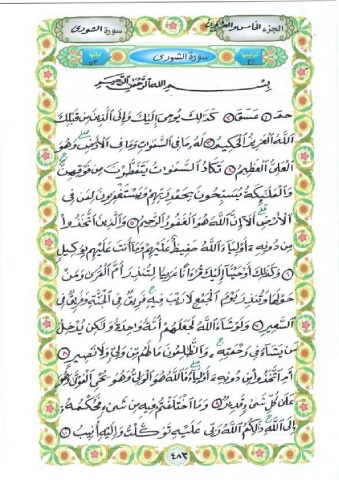 الجزء الخامس والعشرون
سورة الشورى
سورة الشورى
بسم الله الرحمن الرحيم
حم ۝١ عسق ۝٢ كذلك يوحى إليك وإلى الذين من قبلك
الله العزيز الحكيم ۝٣ له ما فى السموات وما فى الأرض وهو
العلى العظيم ۝٤ تكاد السموات يتفطرن من فوقهن
والملئكة يسبحون بحمد ربهم ويستغفرون لمن فى
الأرض ألا إن الله هو الغفور الرحيم ۝٥ والذين اتخذوا
من دونه أولياء الله حفيظ عليهم وما أنت عليهم بوكيل
۝٦ وكذلك أوحينا إليك قرءانا عربيا لتنذر أم القرى ومن
حولها وتنذر يوم الجمع لا ريب فيه فريق فى الجنة وفريق فى
السعير ۝٧ ولو شاء الله لجعلهم أمة واحدة ولكن يدخل
من يشاء فى رحمته والظلمون ما لهم من ولى ولا نصير ۝٨
أم اتخذوا من دونه أولياء فالله هو الولى وهو يحى الموتى وهو
على كل شىء قدير ۝٩ وما اختلفتم فيه من شىء فحكمه
إلى الله ذلكم الله ربى عليه توكلت وإليه أنيب ۝١٠
٤٨٣